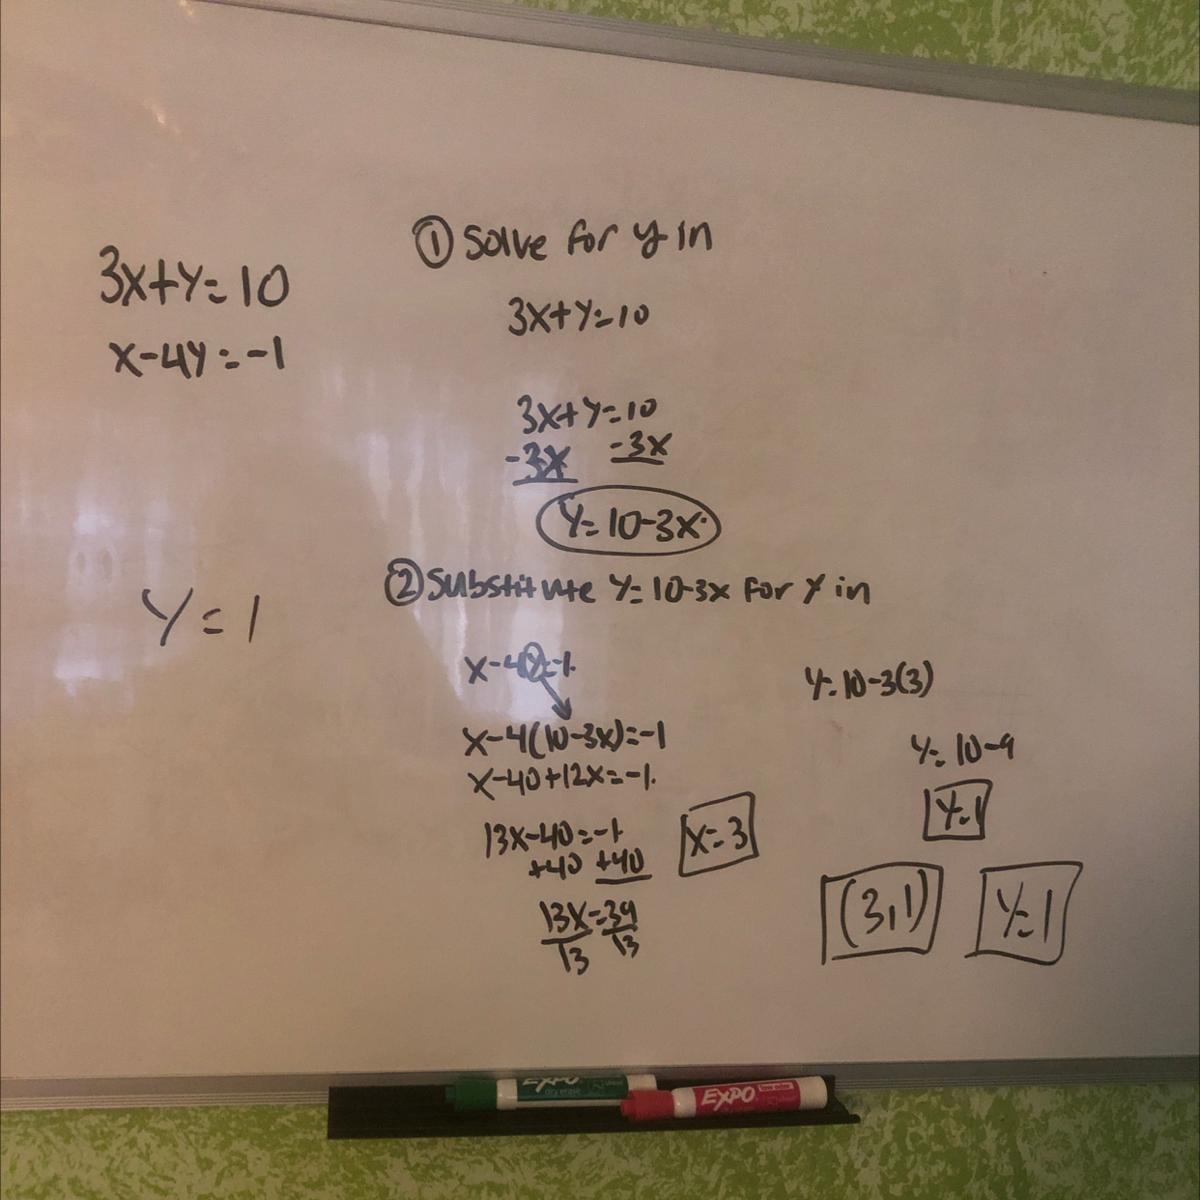 3x+y=10
x-4y=-1
y=1
① Solve for y in
3x+y=10
3x+y=10
-3x -3x
y=10-3x
② Substitute y=10-3x for y in
x-4y=-1.
x-4(10-3x)=-1
x-40+12x=-1.
13x-40=-1
+40 +40
13x=39
13 13
x=3
y=10-3(3)
y=10-9
y=1
(3,1)
y=1
EXPO
dry erase
EXPO
low odor